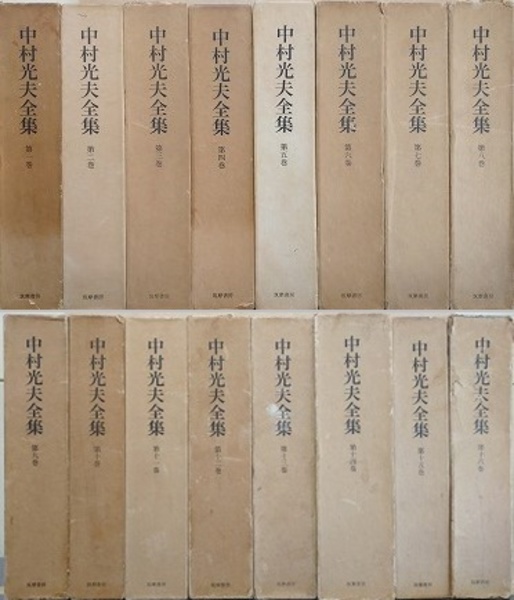 中村光夫全集
第一巻
筑摩書房
中村光夫全集
第二巻
筑摩書房
中村光夫全集
第三巻
筑摩書房
中村光夫全集
第四巻
筑摩書房
中村光夫全集
第五巻
筑摩書房
中村光夫全集
第六巻
筑摩書房
中村光夫全集
第七巻
筑摩書房
中村光夫全集
第八巻
筑摩書房
中村光夫全集
第九巻
筑摩書房
中村光夫全集
第十巻
筑摩書房
中村光夫全集
第十一巻
筑摩書房
中村光夫全集
第十二巻
筑摩書房
中村光夫全集
第十三巻
筑摩書房
中村光夫全集
第十四巻
筑摩書房
中村光夫全集
第十五巻
筑摩書房
中村光夫全集
第十六巻
筑摩書房